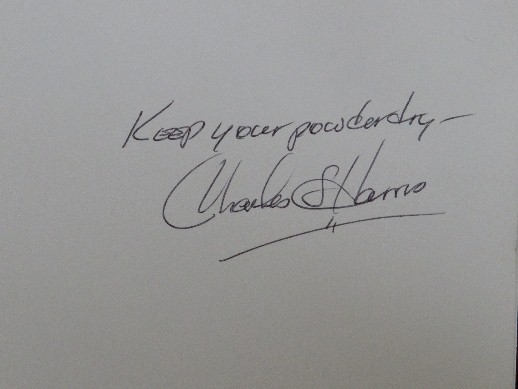 Keep your powder dry —
Charles S Harris